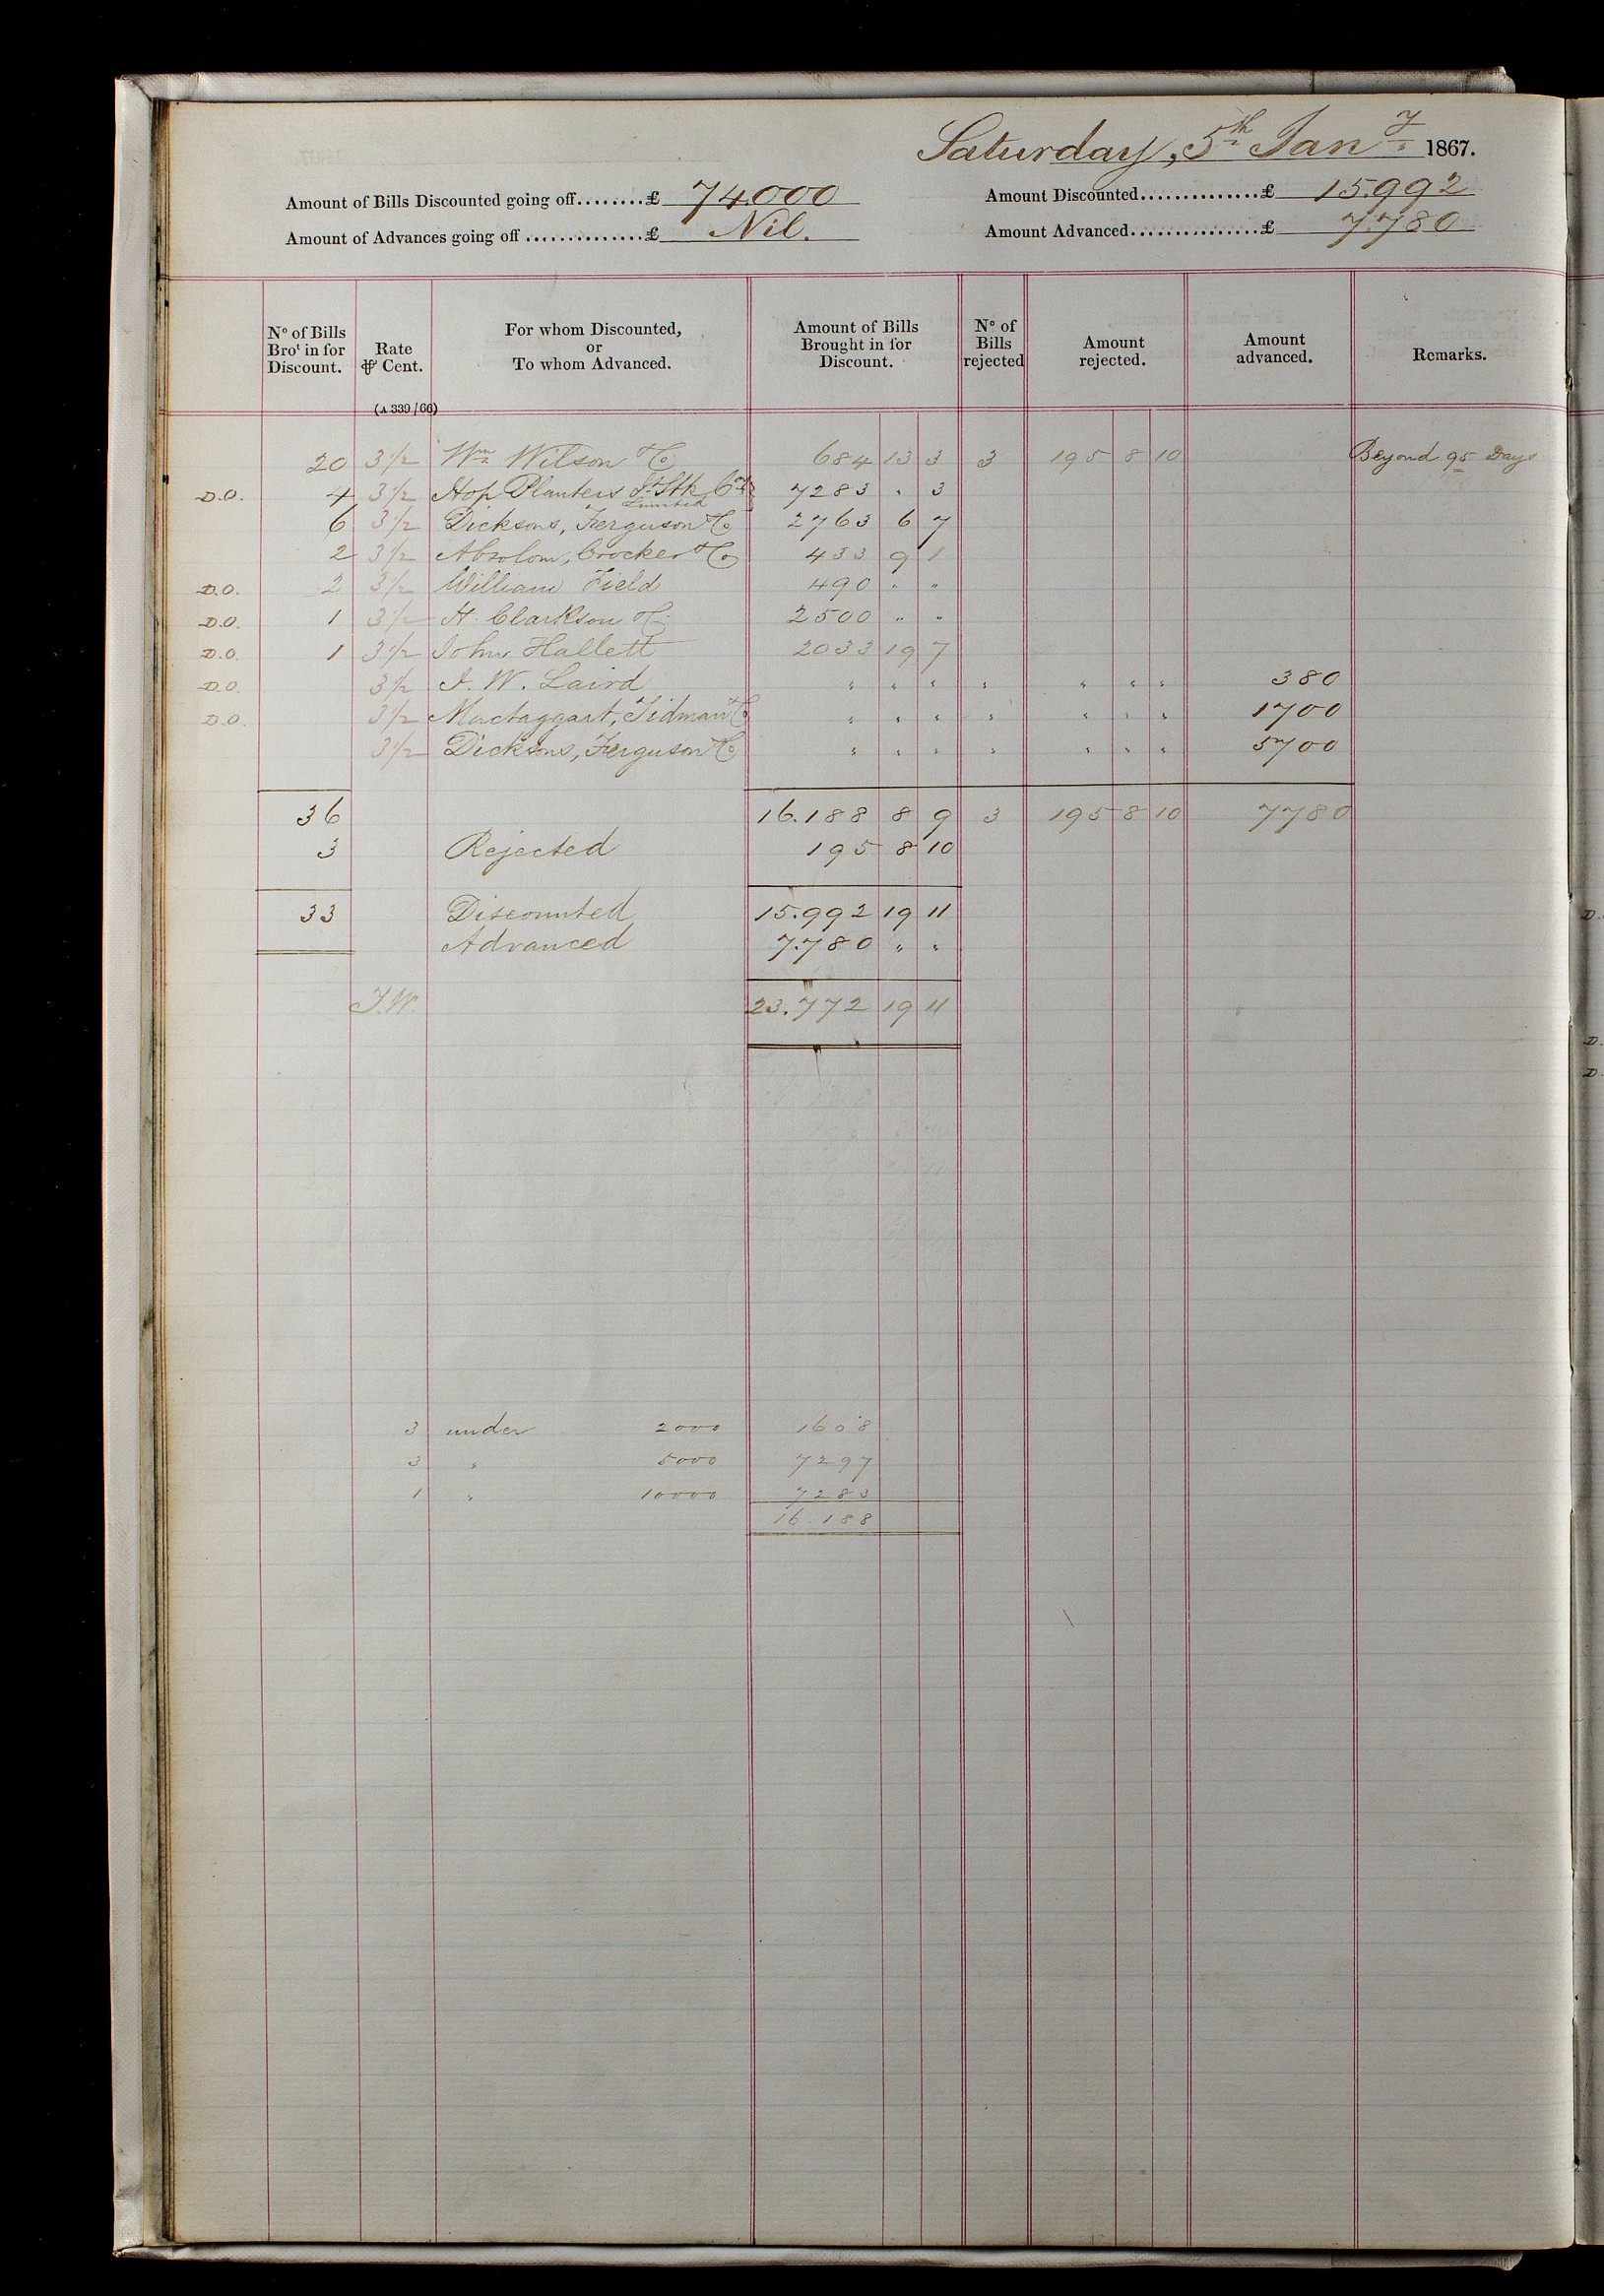 Saturday, 5th Jany 1867.
Amount of Bills Discounted going off........£ 74.000 Amount Discounted...............£ 15.992
Amount of Advances going off...............£ Nil. Amount Advanced................£ 7.780
No of Bills Brot in for Discount. Rate ⅌ Cent. For whom Discounted, or To whom Advanced. Amount of Bills Brought in for Discount. No of Bills rejected Amount rejected. Amount advanced. Remarks.
(A 339/66)
20 3½ Wm Wilson & Co 684 13 3 3 195 8 10 Beyond 95 Days
D.O. 4 3½ Hop Planters Jt Stk Co Limited 7283 " 3
6 3½ Dicksons, Ferguson & Co 2763 6 7
2 3½ Absolom, Crocker & Co 433 9 1
D.O. 2 3½ William Field 490 " "
D.O. 1 3½ H. Clarkson & Co 2500 " "
D.O. 1 3½ John Hallett 2033 19 7
D.O. 3½ J. W. Laird " " " " " " " 380
D.O. 3½ Mactaggart, Tidman & Co " " " " " " " 1700
3½ Dicksons, Ferguson & Co " " " " " " " 5700
36 16.188 8 9 3 195 8 10 7780
3 Rejected 195 8 10
33 Discounted 15.992 19 11
Advanced 7.780 " "
J.W. 23.772 19 11
3 under 2000 1608
3 " 5000 7297
1 " 10000 7283
16.188
D.
D.
D.